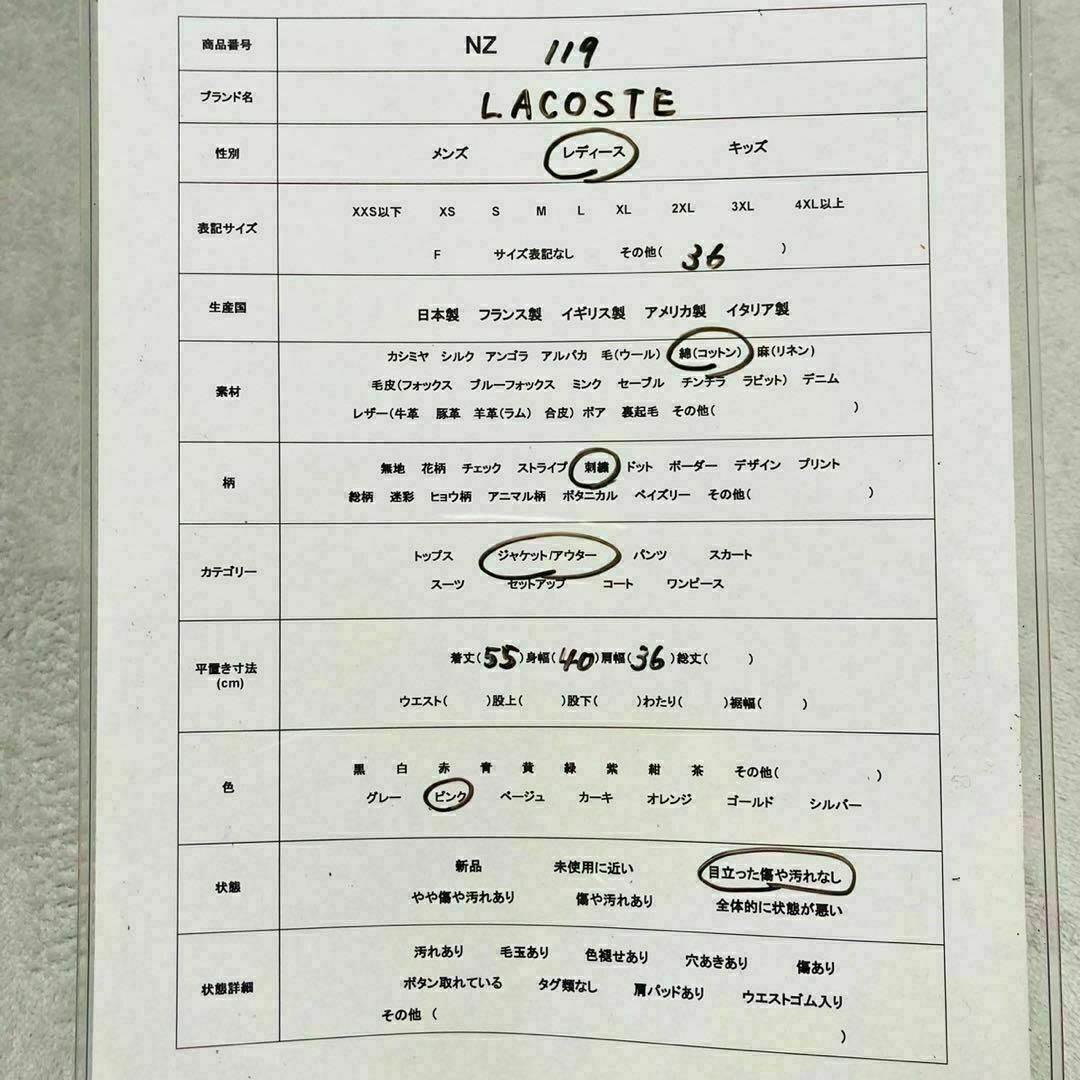 商品番号 NZ 119
ブランド名 LACOSTE
性別 メンズ レディース キッズ
表記サイズ
XXS以下 XS S M L XL 2XL 3XL 4XL以上
F サイズ表記なし その他( 36 )
生産国 日本製 フランス製 イギリス製 アメリカ製 イタリア製
素材
カシミヤ シルク アンゴラ アルパカ 毛(ウール) 綿(コットン) 麻(リネン)
毛皮(フォックス ブルーフォックス ミンク セーブル チンチラ ラビット) デニム
レザー(牛革 豚革 羊革(ラム) 合皮) ボア 裏起毛 その他( )
柄
無地 花柄 チェック ストライプ 刺繍 ドット ボーダー デザイン プリント
総柄 迷彩 ヒョウ柄 アニマル柄 ボタニカル ペイズリー その他( )
カテゴリー
トップス ジャケット/アウター パンツ スカート
スーツ セットアップ コート ワンピース
平置き寸法
(cm)
着丈(55)身幅(40)肩幅(36)総丈( )
ウエスト( )股上( )股下( )わたり( )裾幅( )
色
黒 白 赤 青 黄 緑 紫 紺 茶 その他( )
グレー ピンク ベージュ カーキ オレンジ ゴールド シルバー
状態
新品 未使用に近い 目立った傷や汚れなし
やや傷や汚れあり 傷や汚れあり 全体的に状態が悪い
状態詳細
汚れあり 毛玉あり 色褪せあり 穴あきあり 傷あり
ボタン取れている タグ類なし 肩パッドあり ウエストゴム入り
その他 ( )